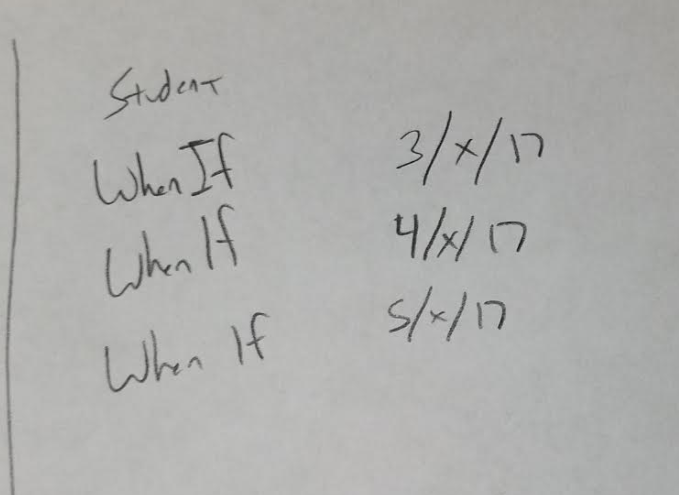 Student
When If 3/x/17
When If 4/x/17
When If 5/x/17